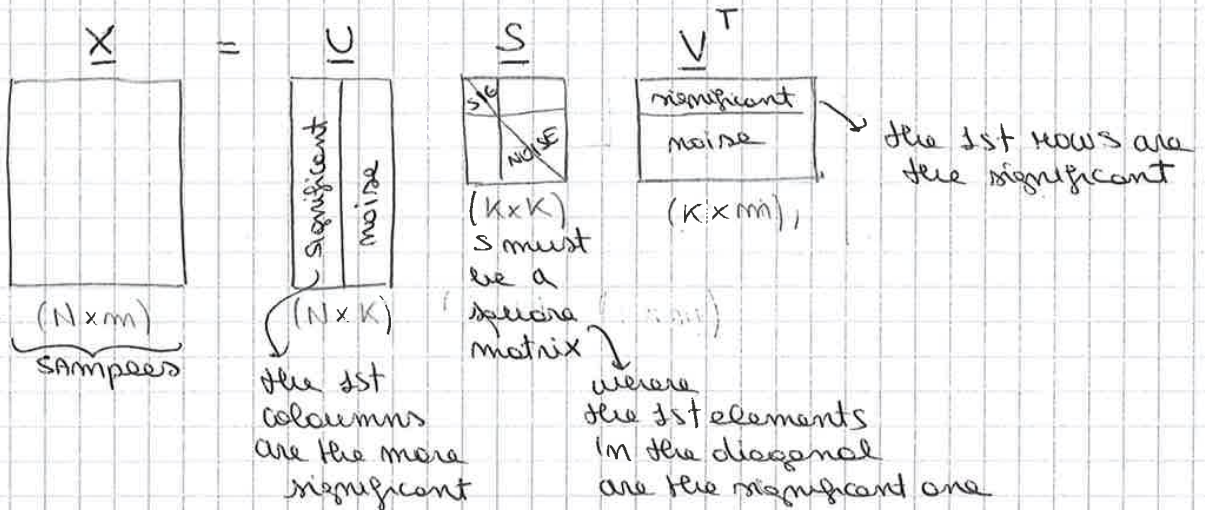 X = U S V^T
significant
noise
SIG
NOISE
significant
noise
the 1st rows are
the significant
(N x m)
SAMPLES
(N x K)
the 1st
coloumns
are the more
significant
(K x K)
S must
be a
square
matrix
(K x m),
where
the 1st elements
in the diagonal
are the significant one